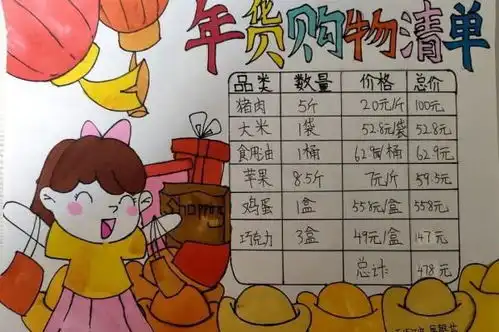 年货购物清单
品类 数量 价格 总价
猪肉 5斤 20元/斤 100元
大米 1袋 52.8元/袋 52.8元
食用油 1桶 62.9元/桶 62.9元
苹果 8.5斤 7元/斤 59.5元
鸡蛋 1盒 55.8元/盒 55.8元
巧克力 3盒 49元/盒 147元
总计: 478元
Shopping